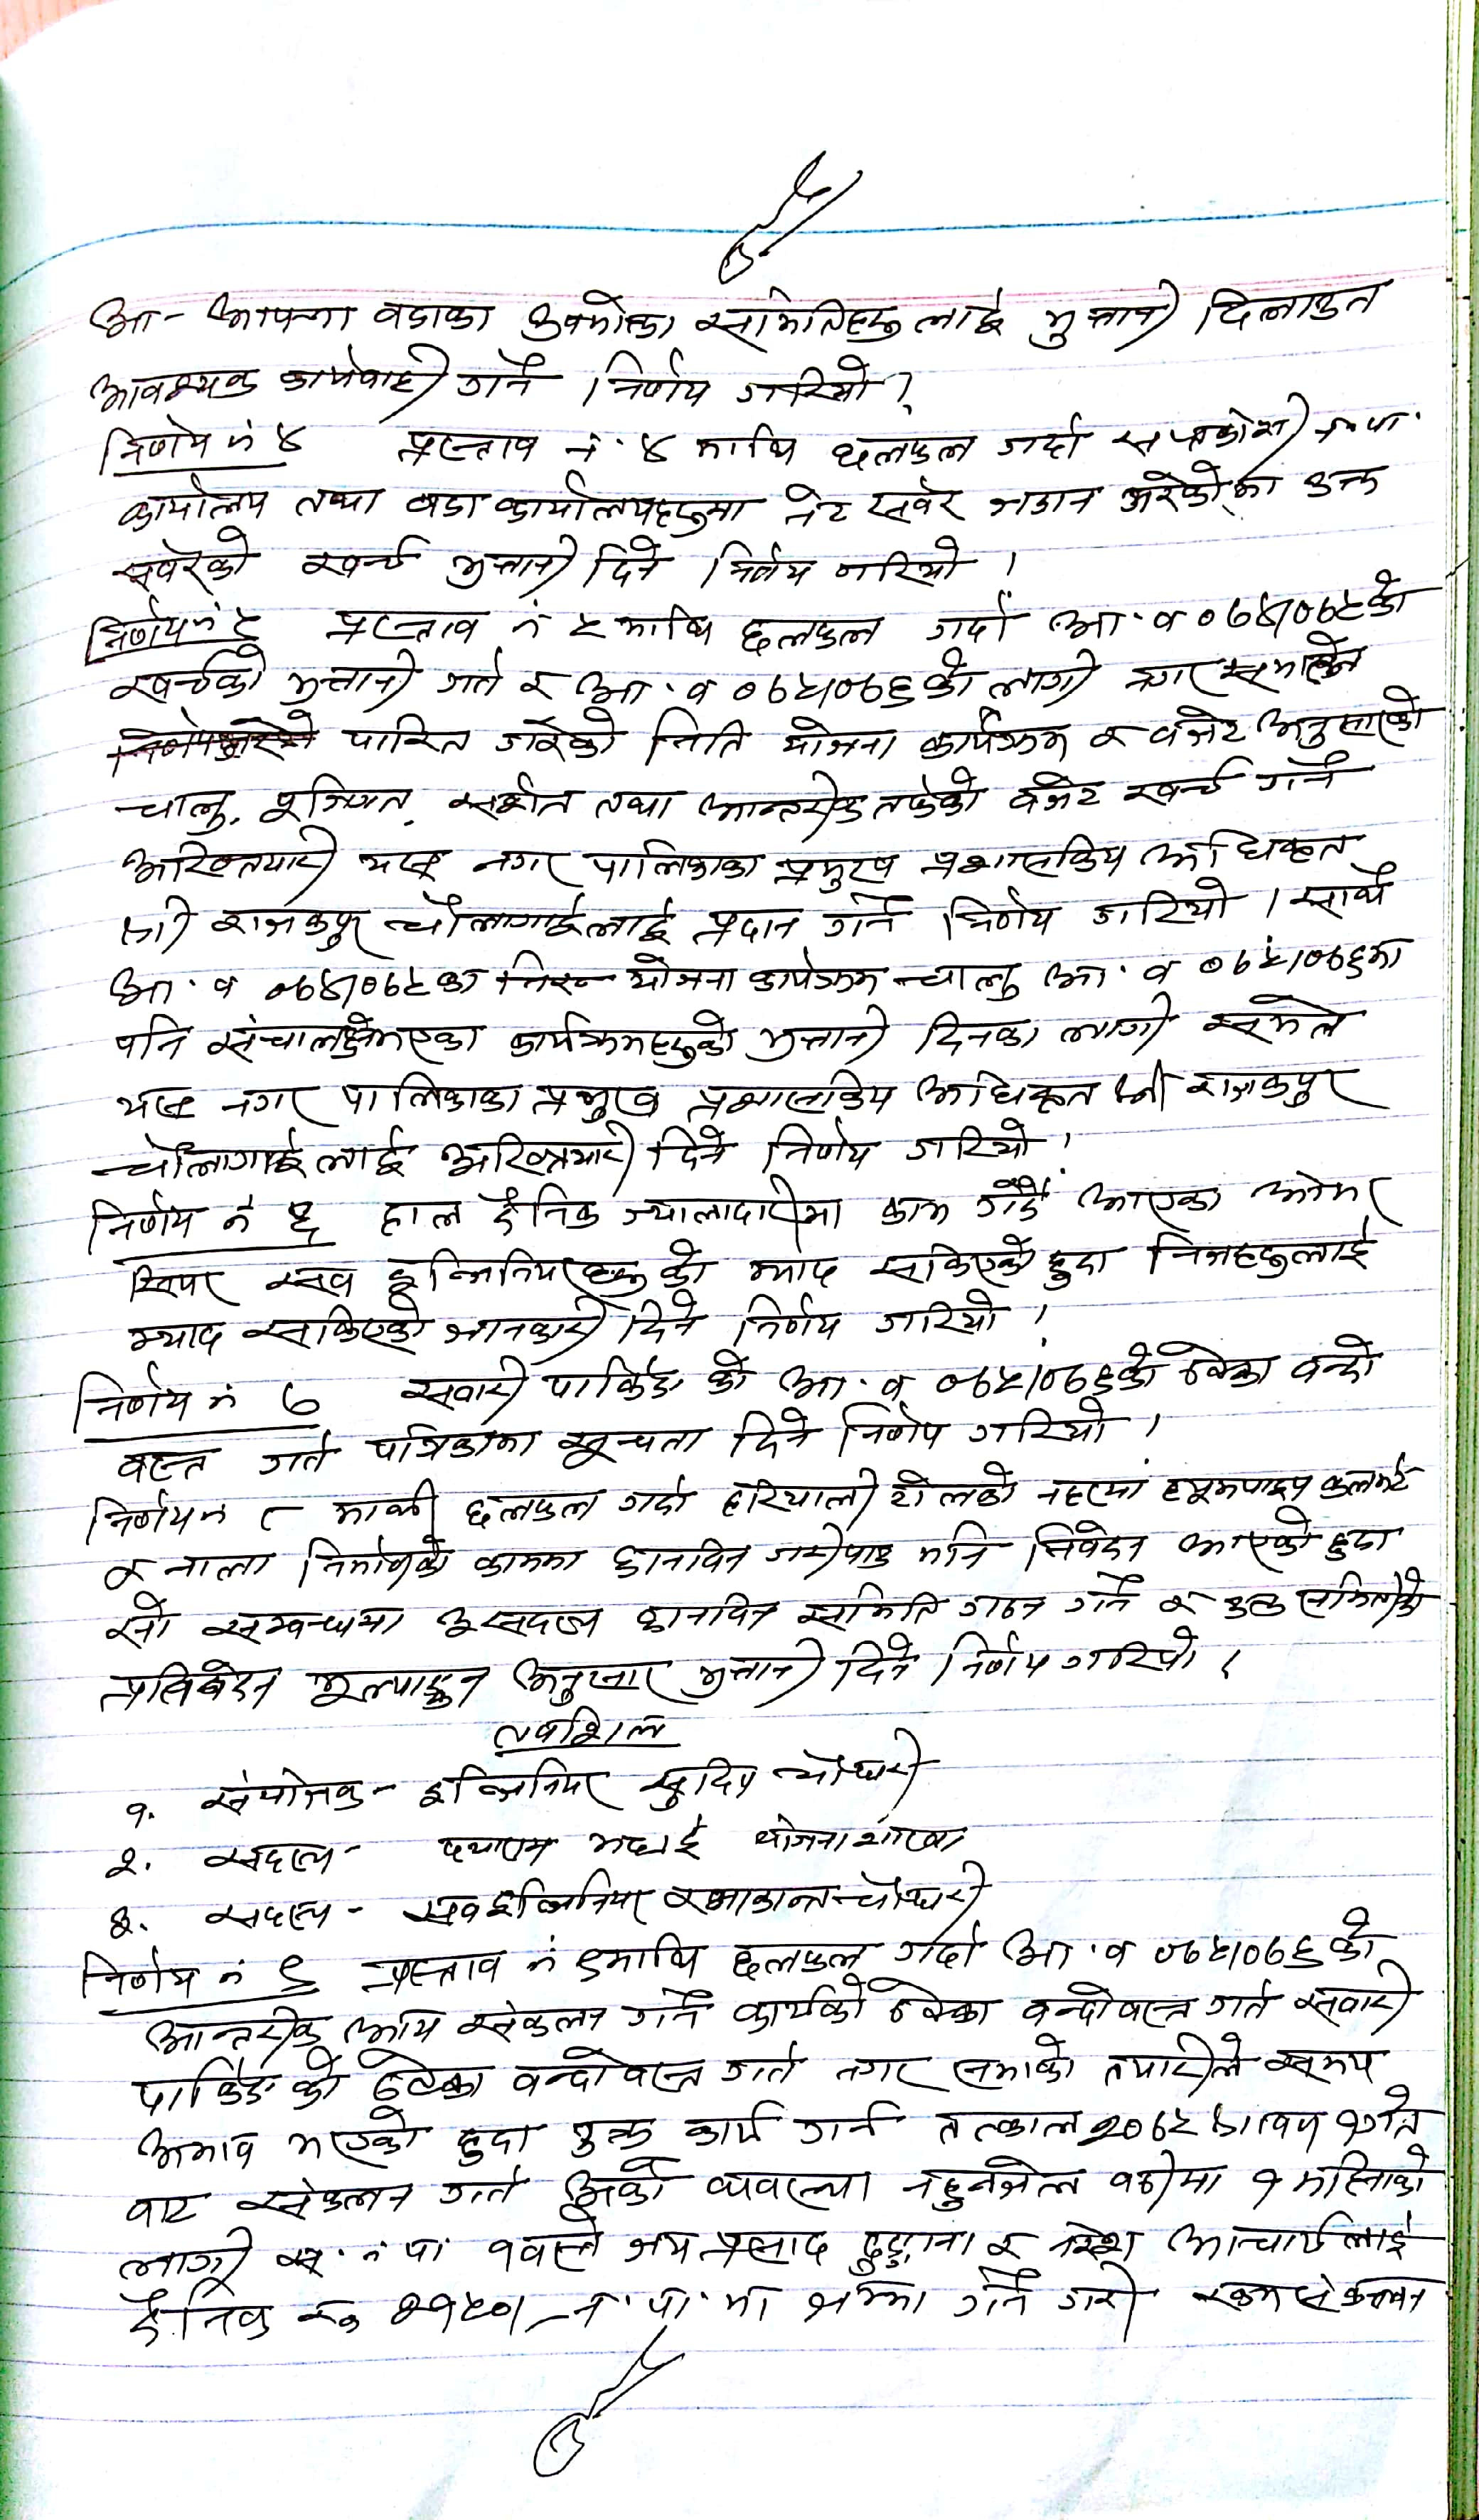 आ-आफ्ना वडाका उपभोक्ता समितिहरु लाई भुक्तानी दिलाउन
आवश्यक कार्यवाही गर्ने निर्णय गरियो ।
निर्णय नं ४ प्रस्ताव नं. ४ माथि छलफल गर्दा सप्तकोशी न.पा.
कार्यालय तथा वडा कार्यालयहरुमा नेट सर्वर जडान गरेकोमा उक्त
सर्वरको खर्च भुक्तानी दिने निर्णय गरियो ।
निर्णय नं ५ प्रस्ताव नं ५ माथि छलफल गर्दा आ.व ०७४/०७५ को
खर्चको भुक्तानी गर्न र आ.व ०७५/०७६ को लागी नगर सभाले
पारित गरेको निति योजना कार्यक्रम र वजेट अनुसारको
चालु, पूजिगत, सर्शत तथा आन्तरीक तर्फको वजेट खर्च गर्ने
अख्तियारी यस नगर पालिकाका प्रमुख प्रशासकिय अधिकृत
श्री राजकपुर चौलागाईलाई प्रदान गर्ने निर्णय गरियो । साथै
आ.व ०७४/०७५ का योजना कार्यक्रम चालु आ.व ०७५/०७६ मा
पनि कार्यक्रमहरुको भुक्तानी दिनका लागी समेत
यस नगर पालिकाका प्रमुख प्रशासकिय अधिकृत श्री राजकपुर
चौलागाई लाई अख्तियारी दिने निर्णय गरियो ।
निर्णय नं ६ हाल दैनिक ज्यालादारीमा काम गर्दै आएका
सव इन्जिनियरहरु को म्याद सकिएको हुदा निजहरुलाई
म्याद सकिएको जानकारी दिने निर्णय गरियो ।
निर्णय नं ७ सवारी पार्किङ को आ.व ०७५/०७६ को ठेक्का वन्दो
वस्त गर्न पत्रिकामा सूचना दिने निर्णय गरियो ।
निर्णय नं ८ माथी छलफल गर्दा हरियाली टोलको नहरमा ह्यूमपाइप कल्भर्ट
र नाला निर्माणको काममा छानविन गरी पाउ भनि निवेदन आएको हुदा
सो सम्वन्धमा ३ सदस्य छानविन समिति गठन गर्ने र उक्त समितीको
प्रतिवेदन मूल्याङ्कन अनुसार भुक्तानी दिने निर्णय गरियो ।
तपशिल
१. संयोजक - इन्जिनियर सुदिप चौधरी
२. सदस्य - दयाराम भट्टराई योजना शाखा
३. सदस्य - सव इन्जिनियर रमाकान्त चौधरी
निर्णय नं ९ प्रस्ताव नं ९ माथि छलफल गर्दा आ.व ०७५/०७६ को
आन्तरीक आय संकलन गर्ने कार्यको ठेक्का वन्दोवस्त गर्न सवारी
पार्किङ को ठेक्का वन्दोवस्त गर्न नगर सभाको तयारीले समय
अभाव भएको हुदा उक्त कार्य गर्न तत्काल २०७५ श्रावण १ गते
वाट संकलन गर्न अर्को व्यवस्था नहुनजेल वढीमा १ महिनाको
लागी स. न पा १ वस्ने जय प्रसाद ढुङ्गाना र नरेश आचार्य लाई
दैनिक रु ३१५०/- न.पा. मा जम्मा गर्ने गरी रकम संकलन